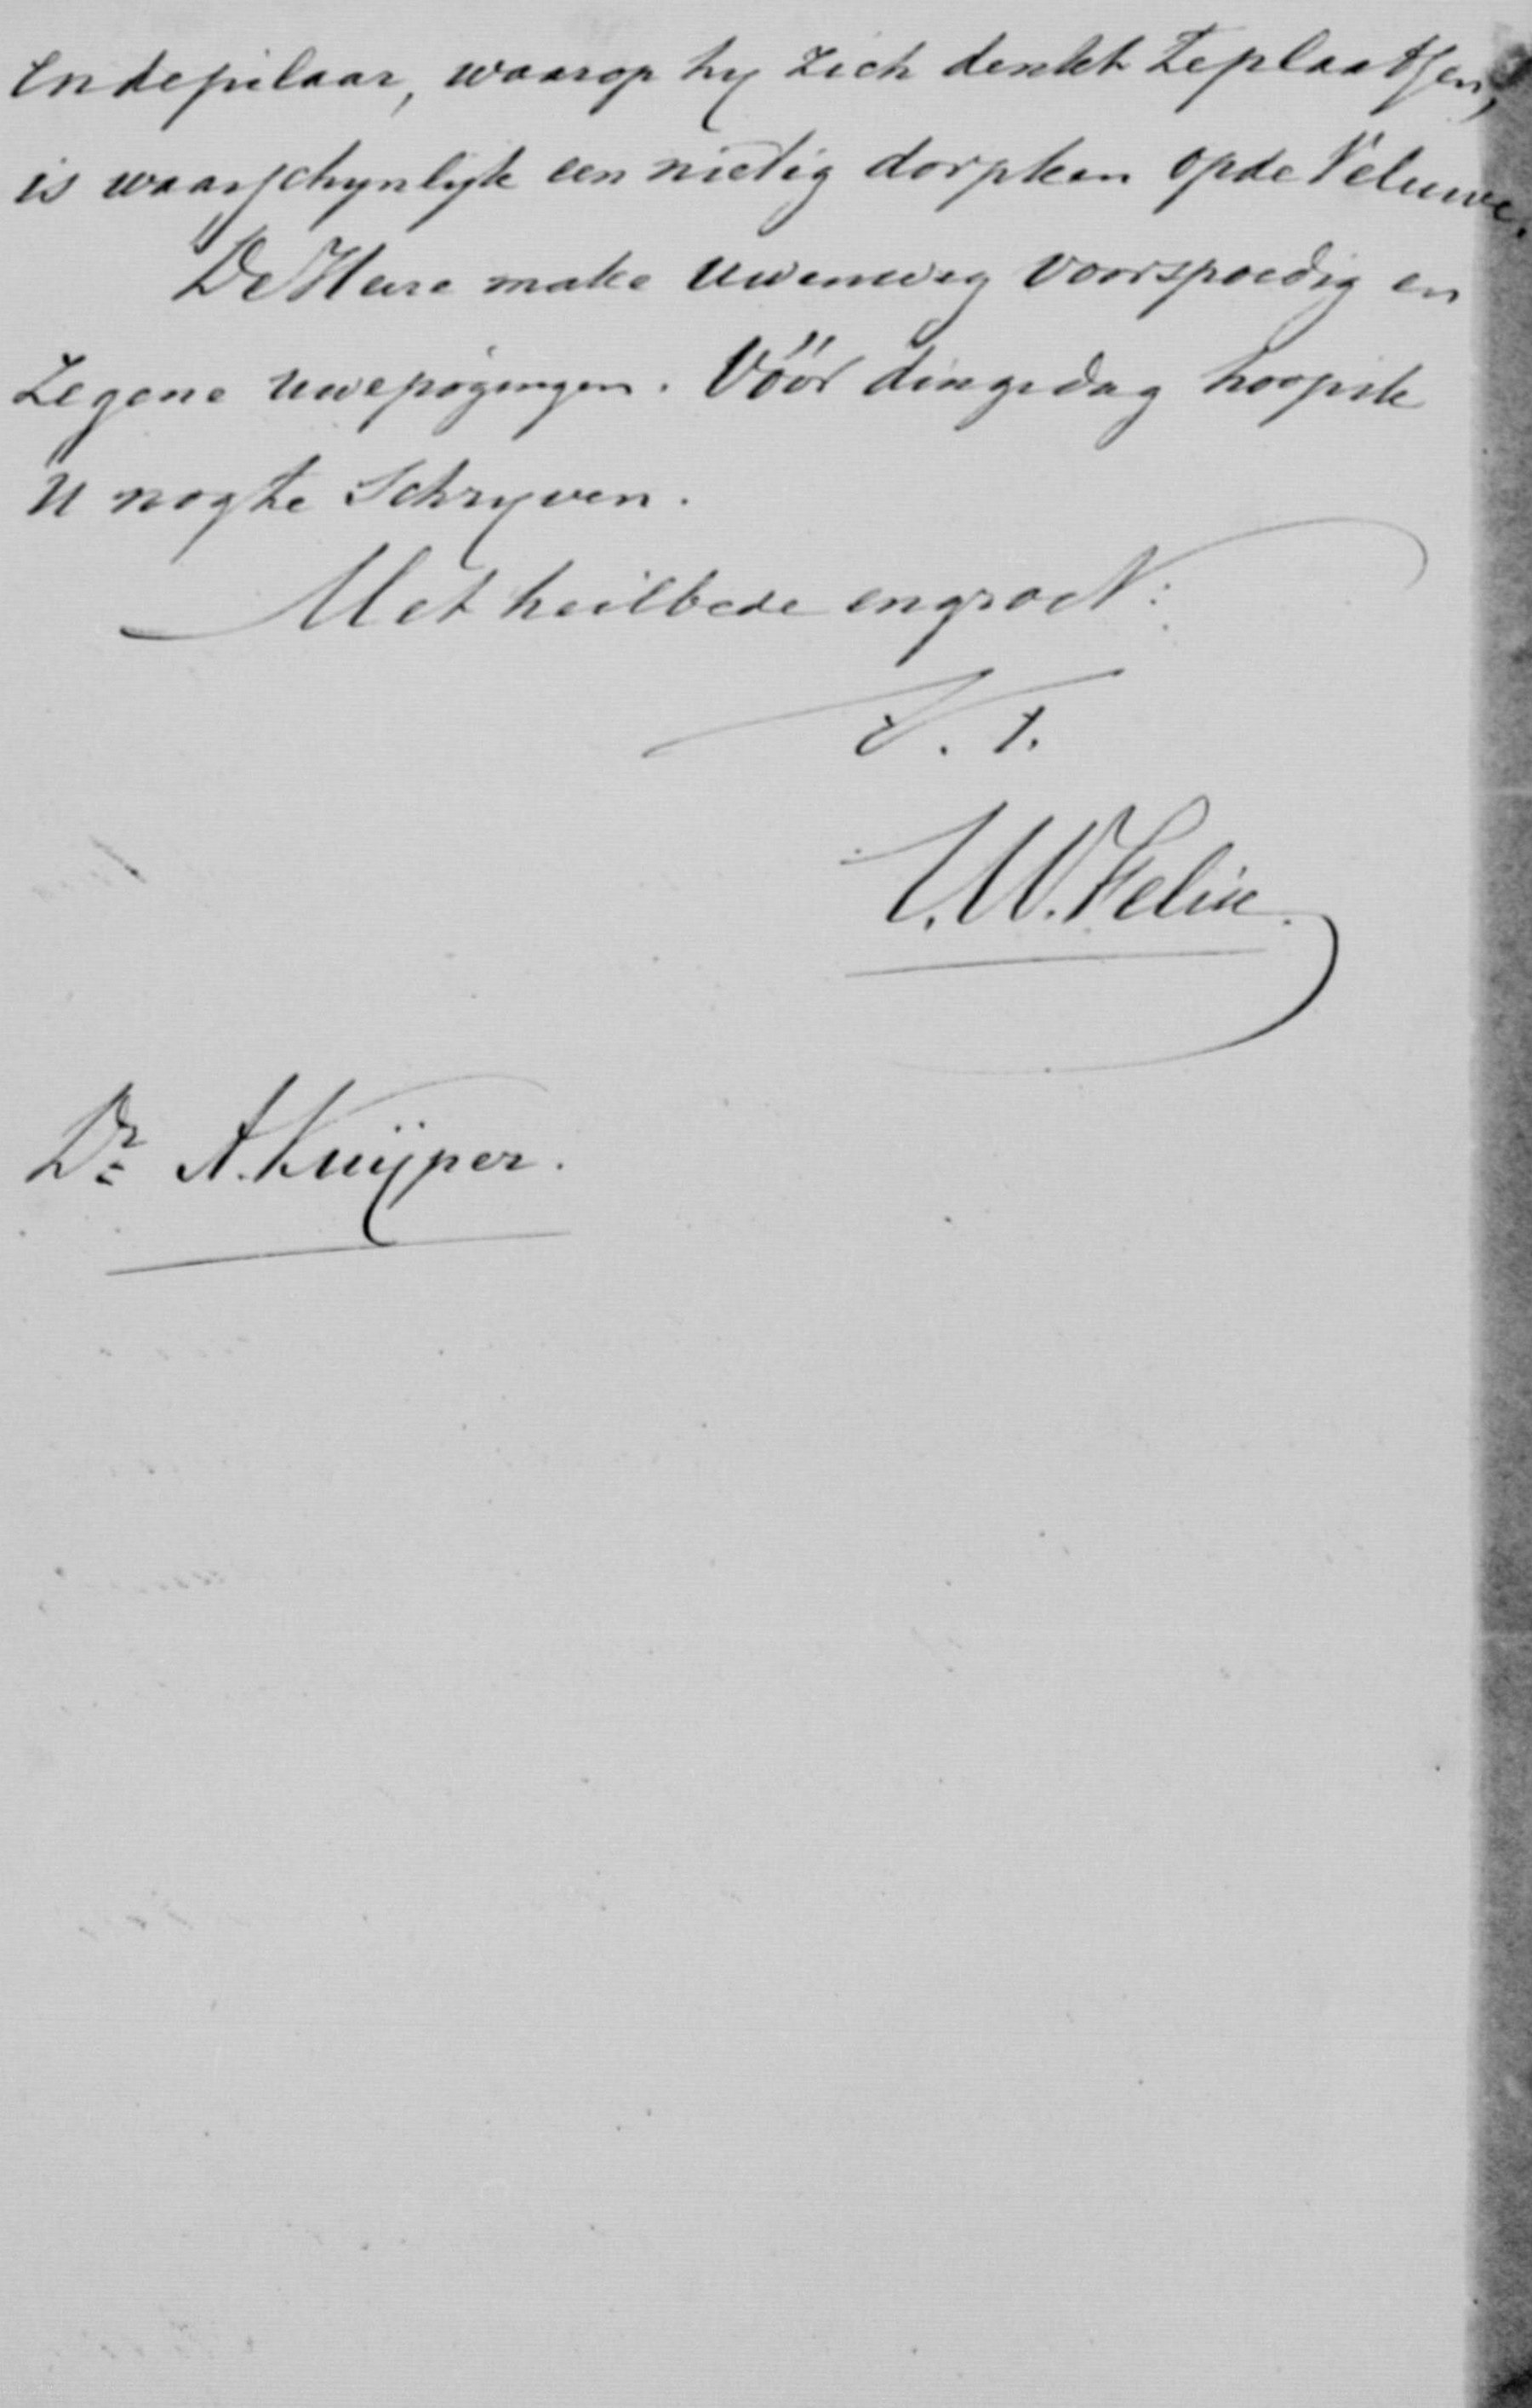 En de pilaar, waarop hy zich denkt te plaatsen,
is waarschynlyk een nietig dorpken op de Veluwe.
De Heere make Uwen weg voorspoedig en
zegene uwe pogingen. Vóór dingsdag hoop ik
U nog te schryven.
Met heilbede en groet:
t. t.
J. W. Felix.
Dr A. Kuÿper.